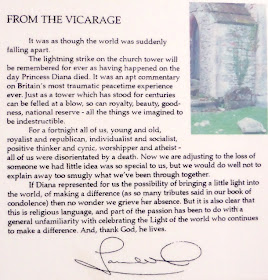 FROM THE VICARAGE
It was as though the world was suddenly
falling apart.
The lightning strike on the church tower will
be remembered for ever as having happened on the
day Princess Diana died. It was an apt commentary
on Britain's most traumatic peacetime experience
ever. Just as a tower which has stood for centuries
can be felled at a blow, so can royalty, beauty, good-
ness, national reserve - all the things we imagined to
be indestructible.
For a fortnight all of us, young and old,
royalist and republican, individualist and socialist,
positive thinker and cynic, worshipper and atheist -
all of us were disorientated by a death. Now we are adjusting to the loss of
someone we had little idea was so special to us, but we would do well not to
explain away too smugly what we've been through together.
If Diana represented for us the possibility of bringing a little light into
the world, of making a difference (as so many tributes said in our book of
condolence) then no wonder we grieve her absence. But it is also clear that
this is religious language, and part of the passion has been to do with a
general unfamiliarity with celebrating the Light of the world who continues
to make a difference. And, thank God, he lives.